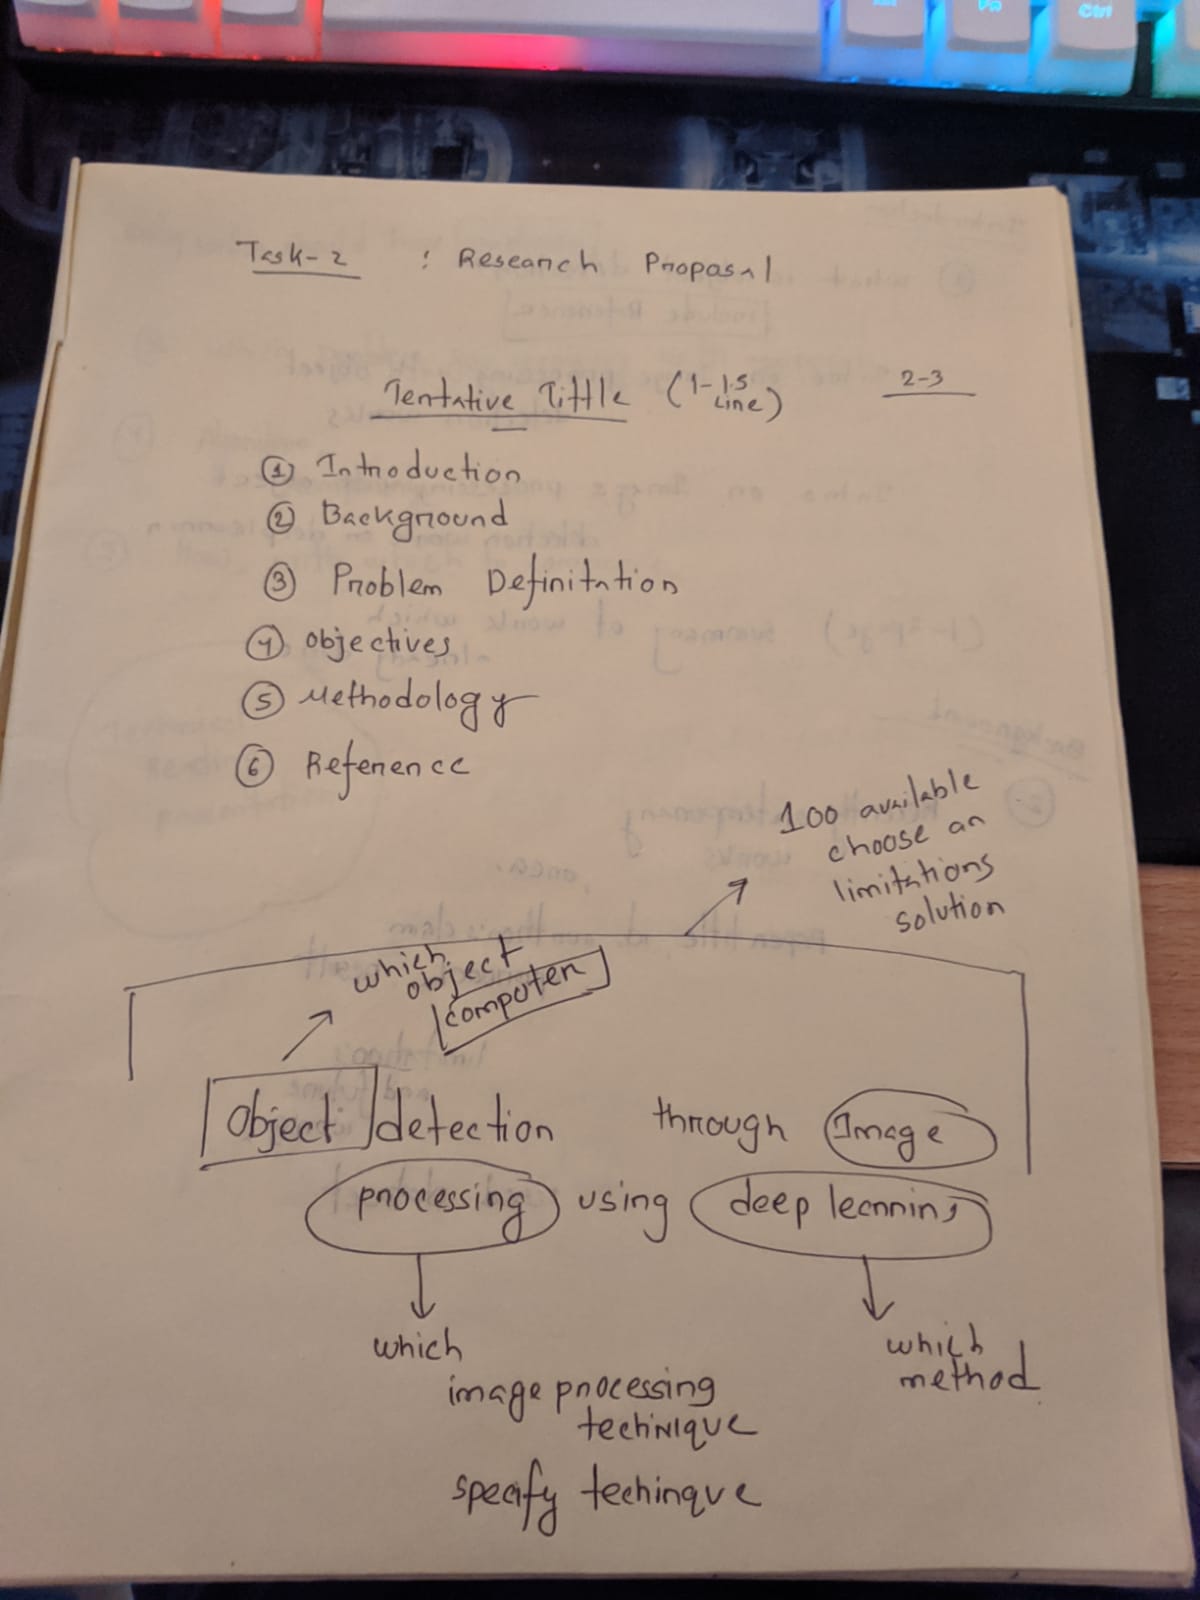 Task-2 : Research Proposal
Tentative Tittle (1-1.5 Line) 2-3
① Introduction
② Background
③ Problem Definitation
④ objectives
⑤ Methodology
⑥ Reference
100 available
choose an
limitations
solution
which
object
computer
object detection through Image
processing using deep learning
which
image processing
techinique
specify techinque
which
method
Ctrl